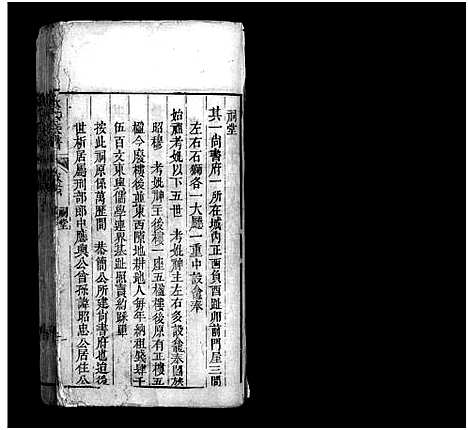 祠堂
其一尚書府一所在城內正西負酉趾卯前門屋三間
左右石獅各一大廳一重中設龕奉
始祖考妣以下五世 考妣神主左右多設龕奉闔族
昭穆 考妣神主後樓一座五楹樓後原有正樓五
楹今廢樓後並東西隙地耕地人每年納租錢肆千
伍百文東與儒學連界基趾原賣約縣單
按此祠原係萬歷間 恭簡公所建尚書府也道後
世析居屬刑部郎中應奧公曾孫諱昭忠公居住公
祠堂